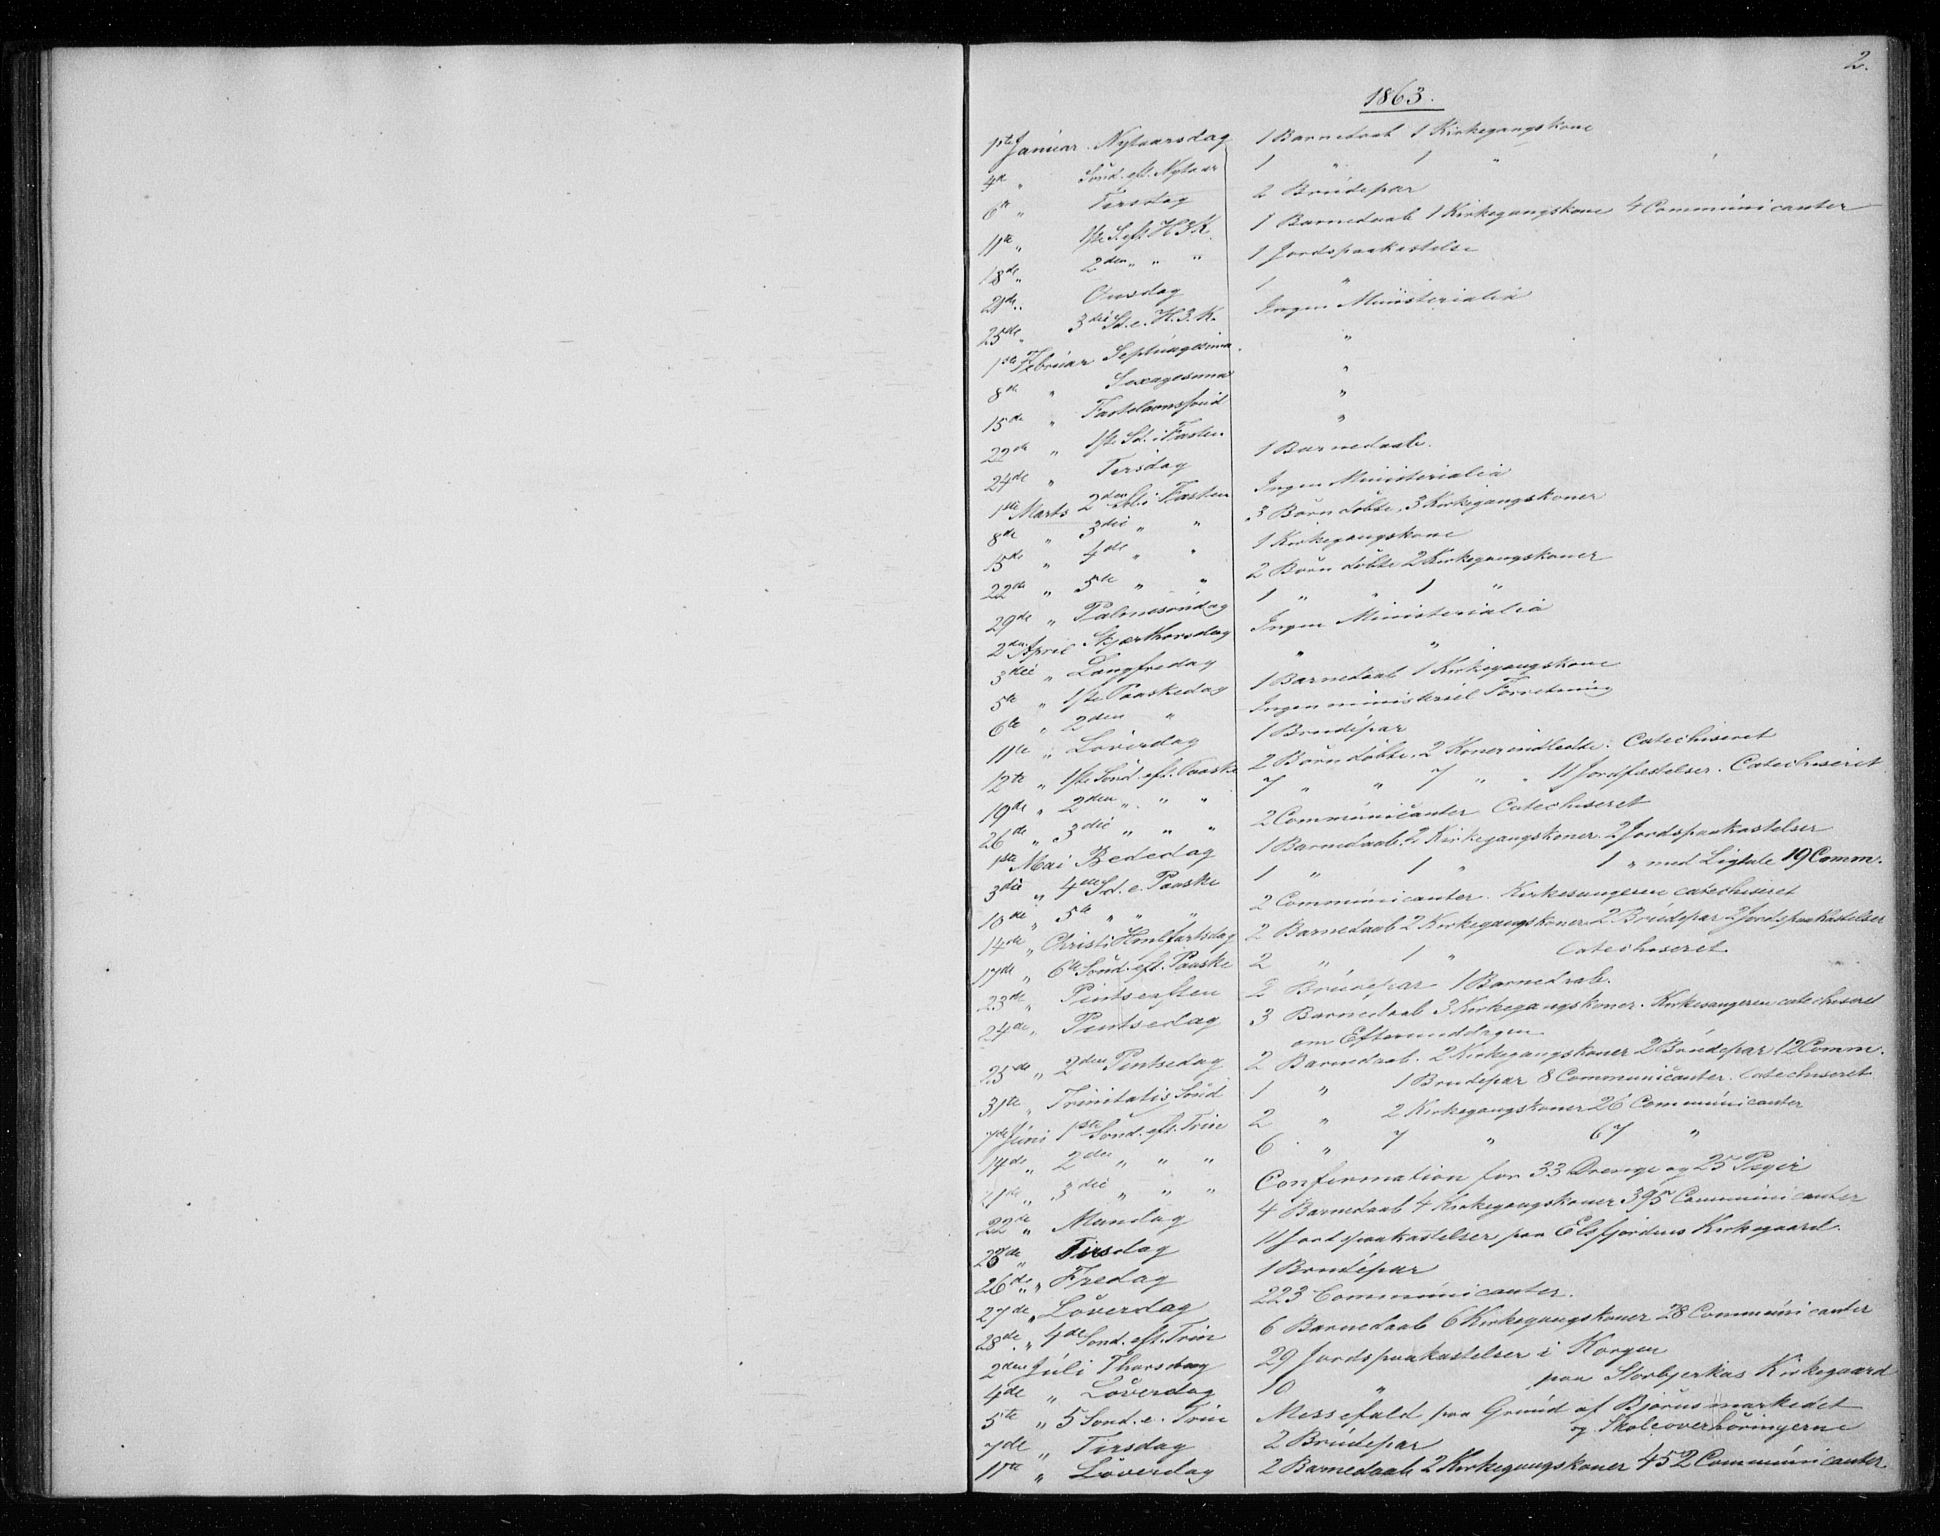 2.
1863.
1ste Januar Nytaarsdag 1 Barnedaab 1 Kirkegangskone
4de " Sönd. eft. Nytaar 1 " 1 "
6te " Tirsdag 2 Brudepar
11te " 1ste S. eft. H3K. 1 Barnedaab 1 Kirkegangskone 4 Communicanter
18de " 2den " " " 1 Jordspaakastelse
21de " Onsdag 1 "
25de " 3die Sd. e. H.3.K. Ingen Ministerialia
1ste Februar Septuagesima "
8de " Sexagesima "
15de " Fastelavnssönd "
22de " 1ste Sd. i Fasten "
24de " Tirsdag 1 Barnedaab.
1ste Marts 2den Sd. i Fasten Ingen Ministerialia
8de " 3die " " 3 Börn döbte, 3 Kirkegangskoner
15de " 4de " " 1 Kirkegangskone
22de " 5te " " 2 Börn döbte 2 Kirkegangskoner
29de " Palmesöndag 1 " " 1 "
2den April Skjærthorsdag Ingen Ministerialia
3die " Langfredag " "
5te " 1ste Paaskedag 1 Barnedaab 1 Kirkegangskone
6te " 2den " Ingen ministeriel Forretning
11te " Löverdag 1 Brudepar
12te " 1ste Sönd. eft. Paaske 2 Börn döbte, 2 Koner indledte. Catechiseret
19de " 2den " " " 7 " " 7 " " 11 Jordfæstelser. Catechiseret
26de " 3die " " " 2 Communicanter Catechiseret
1ste Mai Bededag 1 Barnedaab, 2 Kirkegangskoner. 2 Jordspaakastelser
3die " 4de Sd. e. Paaske 1 " 1 " 1 " med Ligtale 19 Comm.
10de " 5te " " " 2 Communicanter. Kirkesangeren catechiseret
14de " Christi Himlfartsdag 2 Barnedaab 2 Kirkegangskoner 2 Brudepar 2 Jordspaakastelser
17de " 6te Sönd. eft. Paaske 2 " 1 " Catechiseret
23de " Pintseaften 2 Brudepar 1 Barnedaab.
24de " Pintsedag 3 Barnedaab 3 Kirkegangskoner. Kirkesangeren catechiseret
om Eftermiddagen
25de " 2den Pintsedag 2 Barnedaab. 2 Kirkegangskoner 2 Brudepar 12 Comm.
31te " Trinitatis Sönd 1 " 1 Brudepar 8 Communicanter. Catechiseret
7de Juni 1ste Sönd. eft. Trin 2 " 2 Kirkegangskoner 26 Communicanter
14de " 2den " " " 6 " 7 " 67 "
21de " 3die " " " Confirmation for 33 Drenge og 25 Piger
22de " Mandag 4 Barnedaab 4 Kirkegangskoner 395 Communicanter
23de " Tirsdag 11 Jordspaakastelser paa Elsfjordens Kirkegaard.
26de " Fredag 1 Brudepar
27de " Löverdag 223 Communicanter.
28de " 4de Sönd. eft. Trin 6 Barnedaab 6 Kirkegangskoner 28 Communicanter
2den Juli Thorsdag 29 Jordspaakastelser i Korgen
4de " Löverdag 10 " paa Storbjerkas Kirkegaard
5te " 5 Sönd. e. Trin Messefald paa Grund af Björnsmarkedet
og Skoleoverhöringerne
7de " Tirsdag 2 Brudepar
11te " Löverdag 2 Barnedaab 2 Kirkegangskoner 452 Communicanter